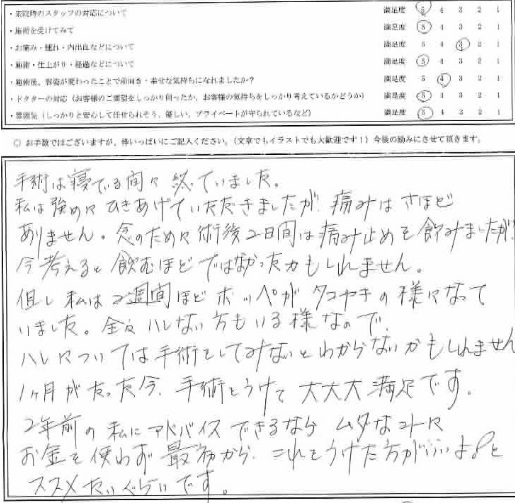 ・来院時のスタッフの対応について 満足度 5 4 3 2 1
・施術を受けてみて 満足度 5 4 3 2 1
・お痛み・腫れ・内出血などについて 満足度 5 4 3 2 1
・施術・仕上がり・経過などについて 満足度 5 4 3 2 1
・施術後、容姿が変わったことで前向き・幸せな気持ちになれましたか? 満足度 5 4 3 2 1
・ドクターの対応(お客様のご要望をしっかり伺ったか、お客様の気持ちをしっかり考えているかどうか) 満足度 5 4 3 2 1
・雰囲気(しっかりと安心して任せられそう、優しい、プライベートが守られているなど) 満足度 5 4 3 2 1
◎ お手数ではございますが、枠いっぱいにご記入ください。(文章でもイラストでも大歓迎です!)今後の励みにさせて頂きます。
手術は寝ている間に終っていました。
私は強めにひきあげていただきましたが、痛みはさほど
ありません。念のために術後2日間は痛み止めを飲みましたが
今考えると飲むほどではなかったかもしれません。
但し私は2週間ほどホッペがタコヤキの様になって
いました。全くハレない方もいる様なので、
ハレについては手術をしてみないとわからないかもしれません
1ヶ月がたった今、手術をうけて大大大満足です。
2年前の私にアドバイスできるなら ムダなコトに
お金を使わず最初から、これをうけた方がいいよ。と
ススメたいぐらいです。